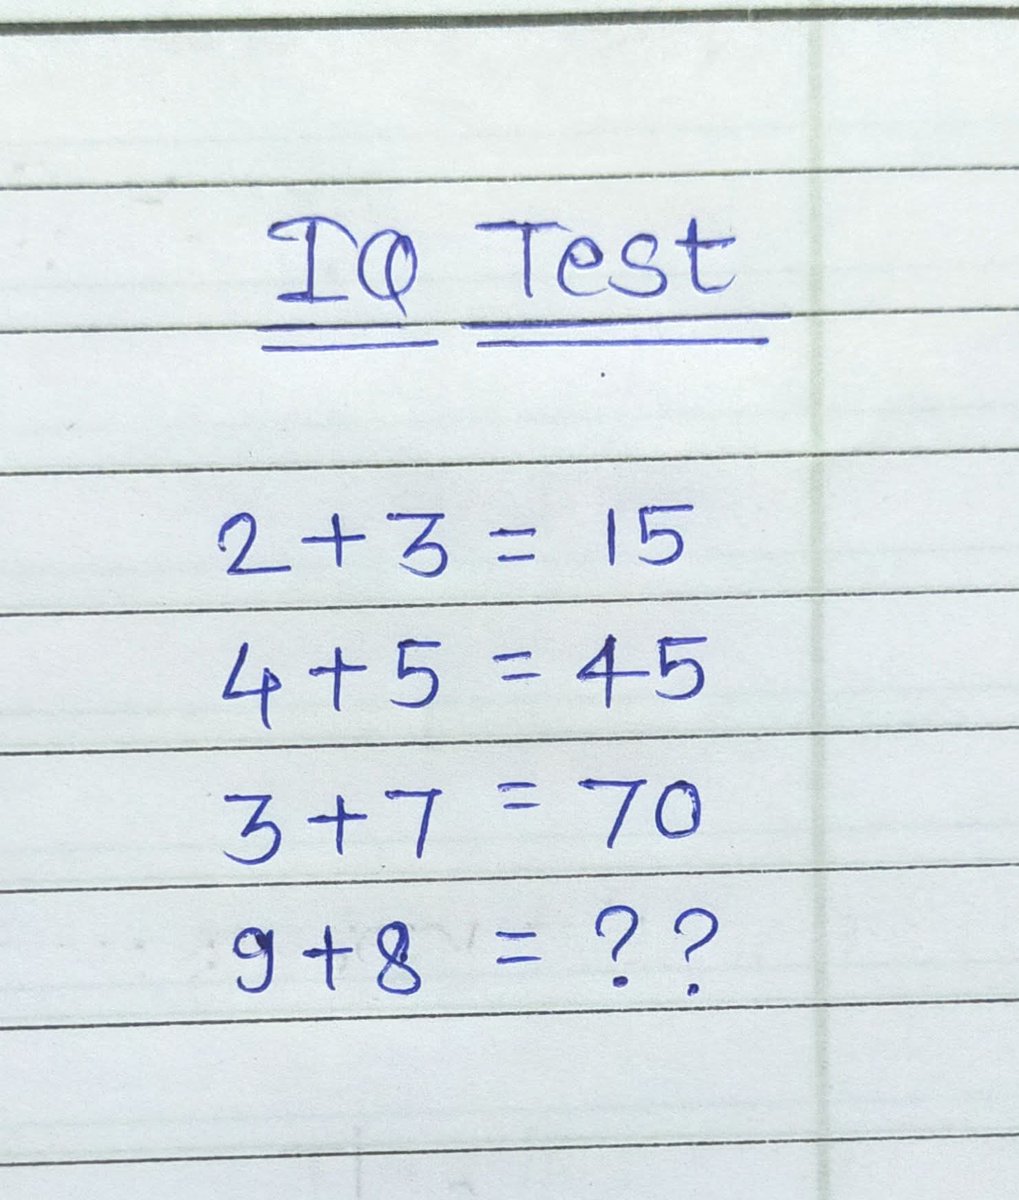 IQ Test
2 + 3 = 15
4 + 5 = 45
3 + 7 = 70
9 + 8 = ??